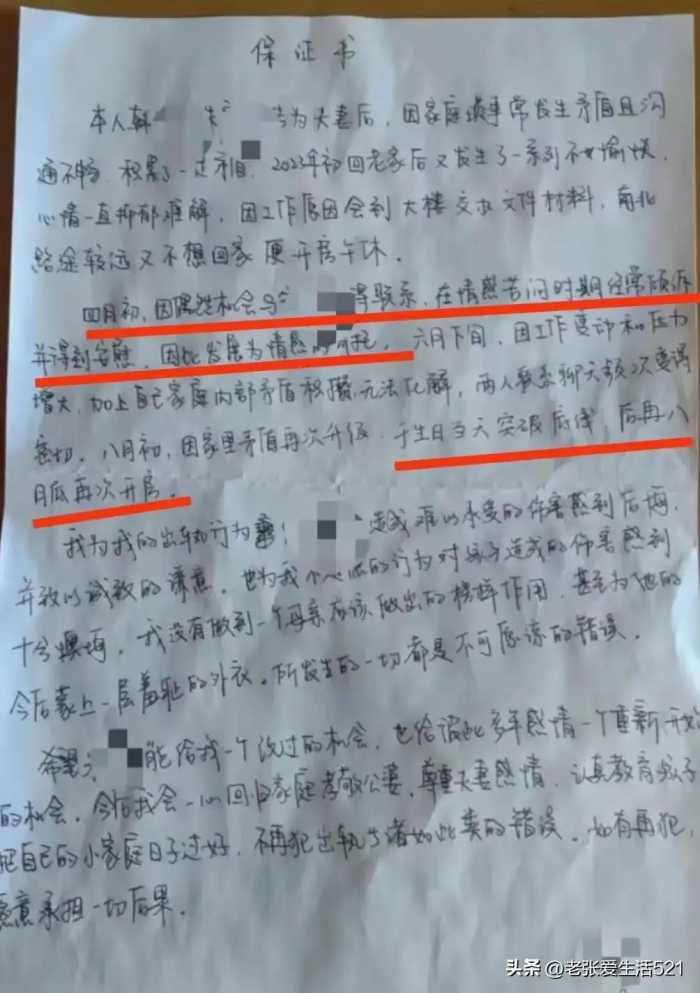 保证书
本人韩 与 结为夫妻后，因家庭琐事常发生矛盾且沟
通不畅，积累了一定 。2023年初回老家后又发生了一系列不愉快，
心情一直抑郁难解，因工作原因会到大楼交求文件材料，南北
路途较远又不想回家便开房午休。
四月初，因偶然机会与 得联系，在情感苦闷时期经常倾诉
并得到安慰，因此发展为情感的 托。六月下旬，因工作变动和压力
增大，加上自己家庭内部矛盾积攒无法化解，两人联系聊天频次变得
密切。八月初，因家里矛盾再次升级，于生日当天突破底线，后再八
月底再次开房。
我为我的出轨行为 造成难以承受的伤害感到后悔，
并致以诚挚的歉意。也为我个 的行为对孩子造成的伤害感到
十分懊悔，我没有做到一个母亲应该做出的榜样作用，甚至为他的
今后蒙上一层羞耻的外衣。所发生的一切都是不可原谅的错误。
希望 能给我一个改过的机会，也给彼此多年感情一个重新开始
的机会，今后我会一心回归家庭孝敬公婆，尊重夫妻感情，认真教育孩子
把自己的小家庭日子过好，不再犯出轨与诸如此类的错误。如有再犯，
愿意承担一切后果。
头条 @老张爱生活521